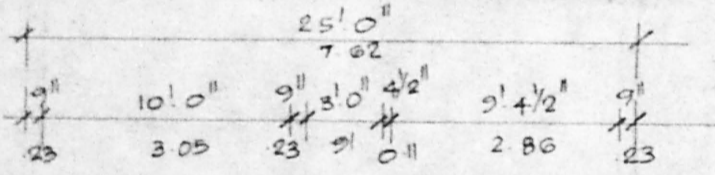 25'.0"
7.62
9" 10'.0" 9" 3'.0" 4½" 9'.4½" 9"
.23 3.05 .23 .91 0.11 2.86 .23